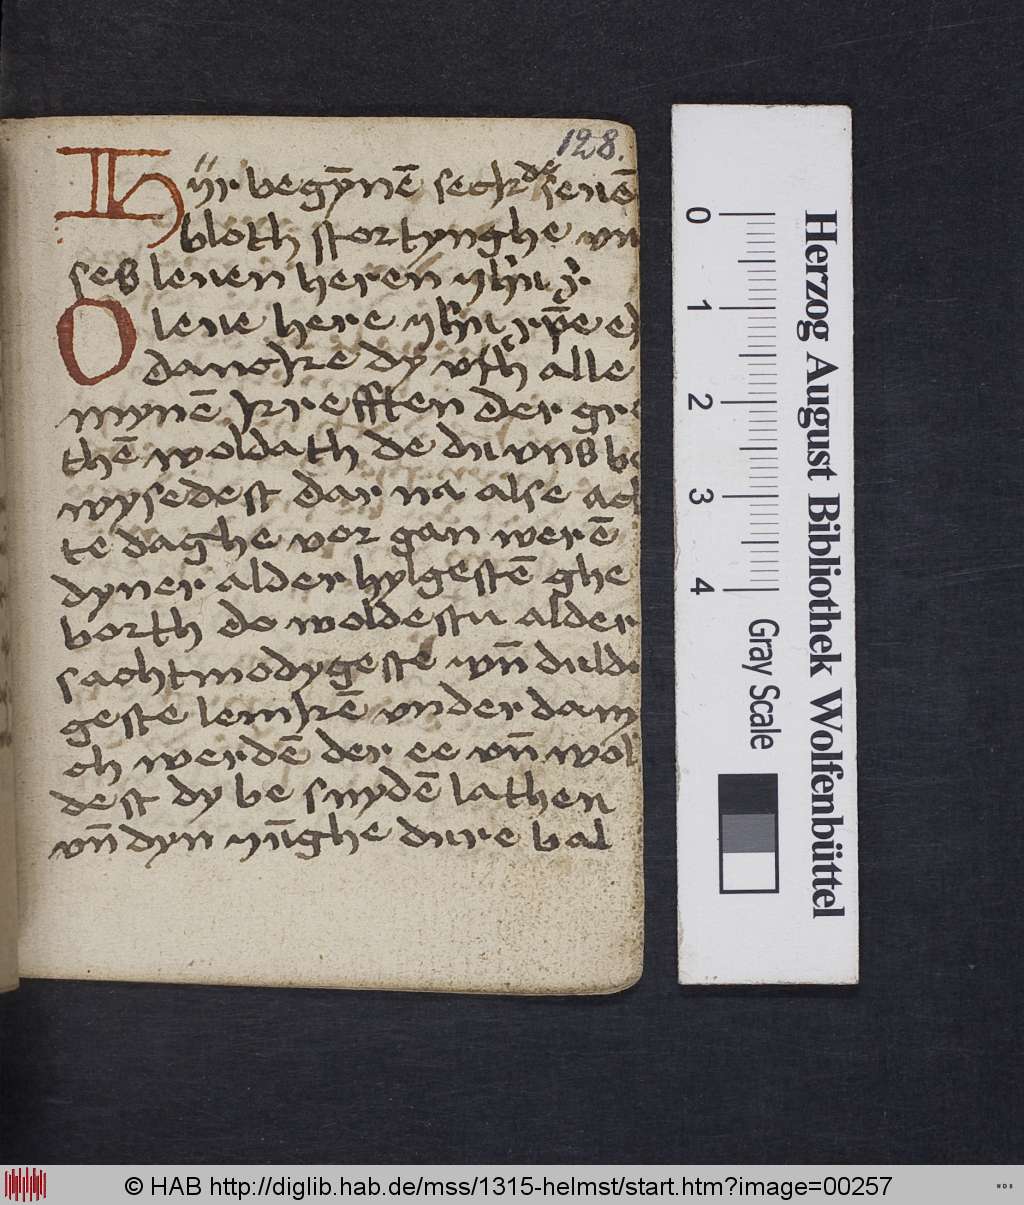 128.
Hÿr begȳnē seck de senē
bloth stortynghe vn
ses leuen heren yhū xr̄
O leue here yhū xp̄e ek
dancke dy vth alle
mynē krefften der gro
thē woldath de du vns be
wysedest dar na alse ach
te daghe vor gan werē
dyner alder hylgestē ghe
borth do woldestu alder
sachtmodygeste vn̄ duldy
geste lemkē vnder dany
ch werdē der ee vn̄ wol
dest dy be snydē lathen
vn̄ dyn yūghe dure bal
0 1 2 3 4
Gray Scale
Herzog August Bibliothek Wolfenbüttel
© HAB http://diglib.hab.de/mss/1315-helmst/start.htm?image=00257